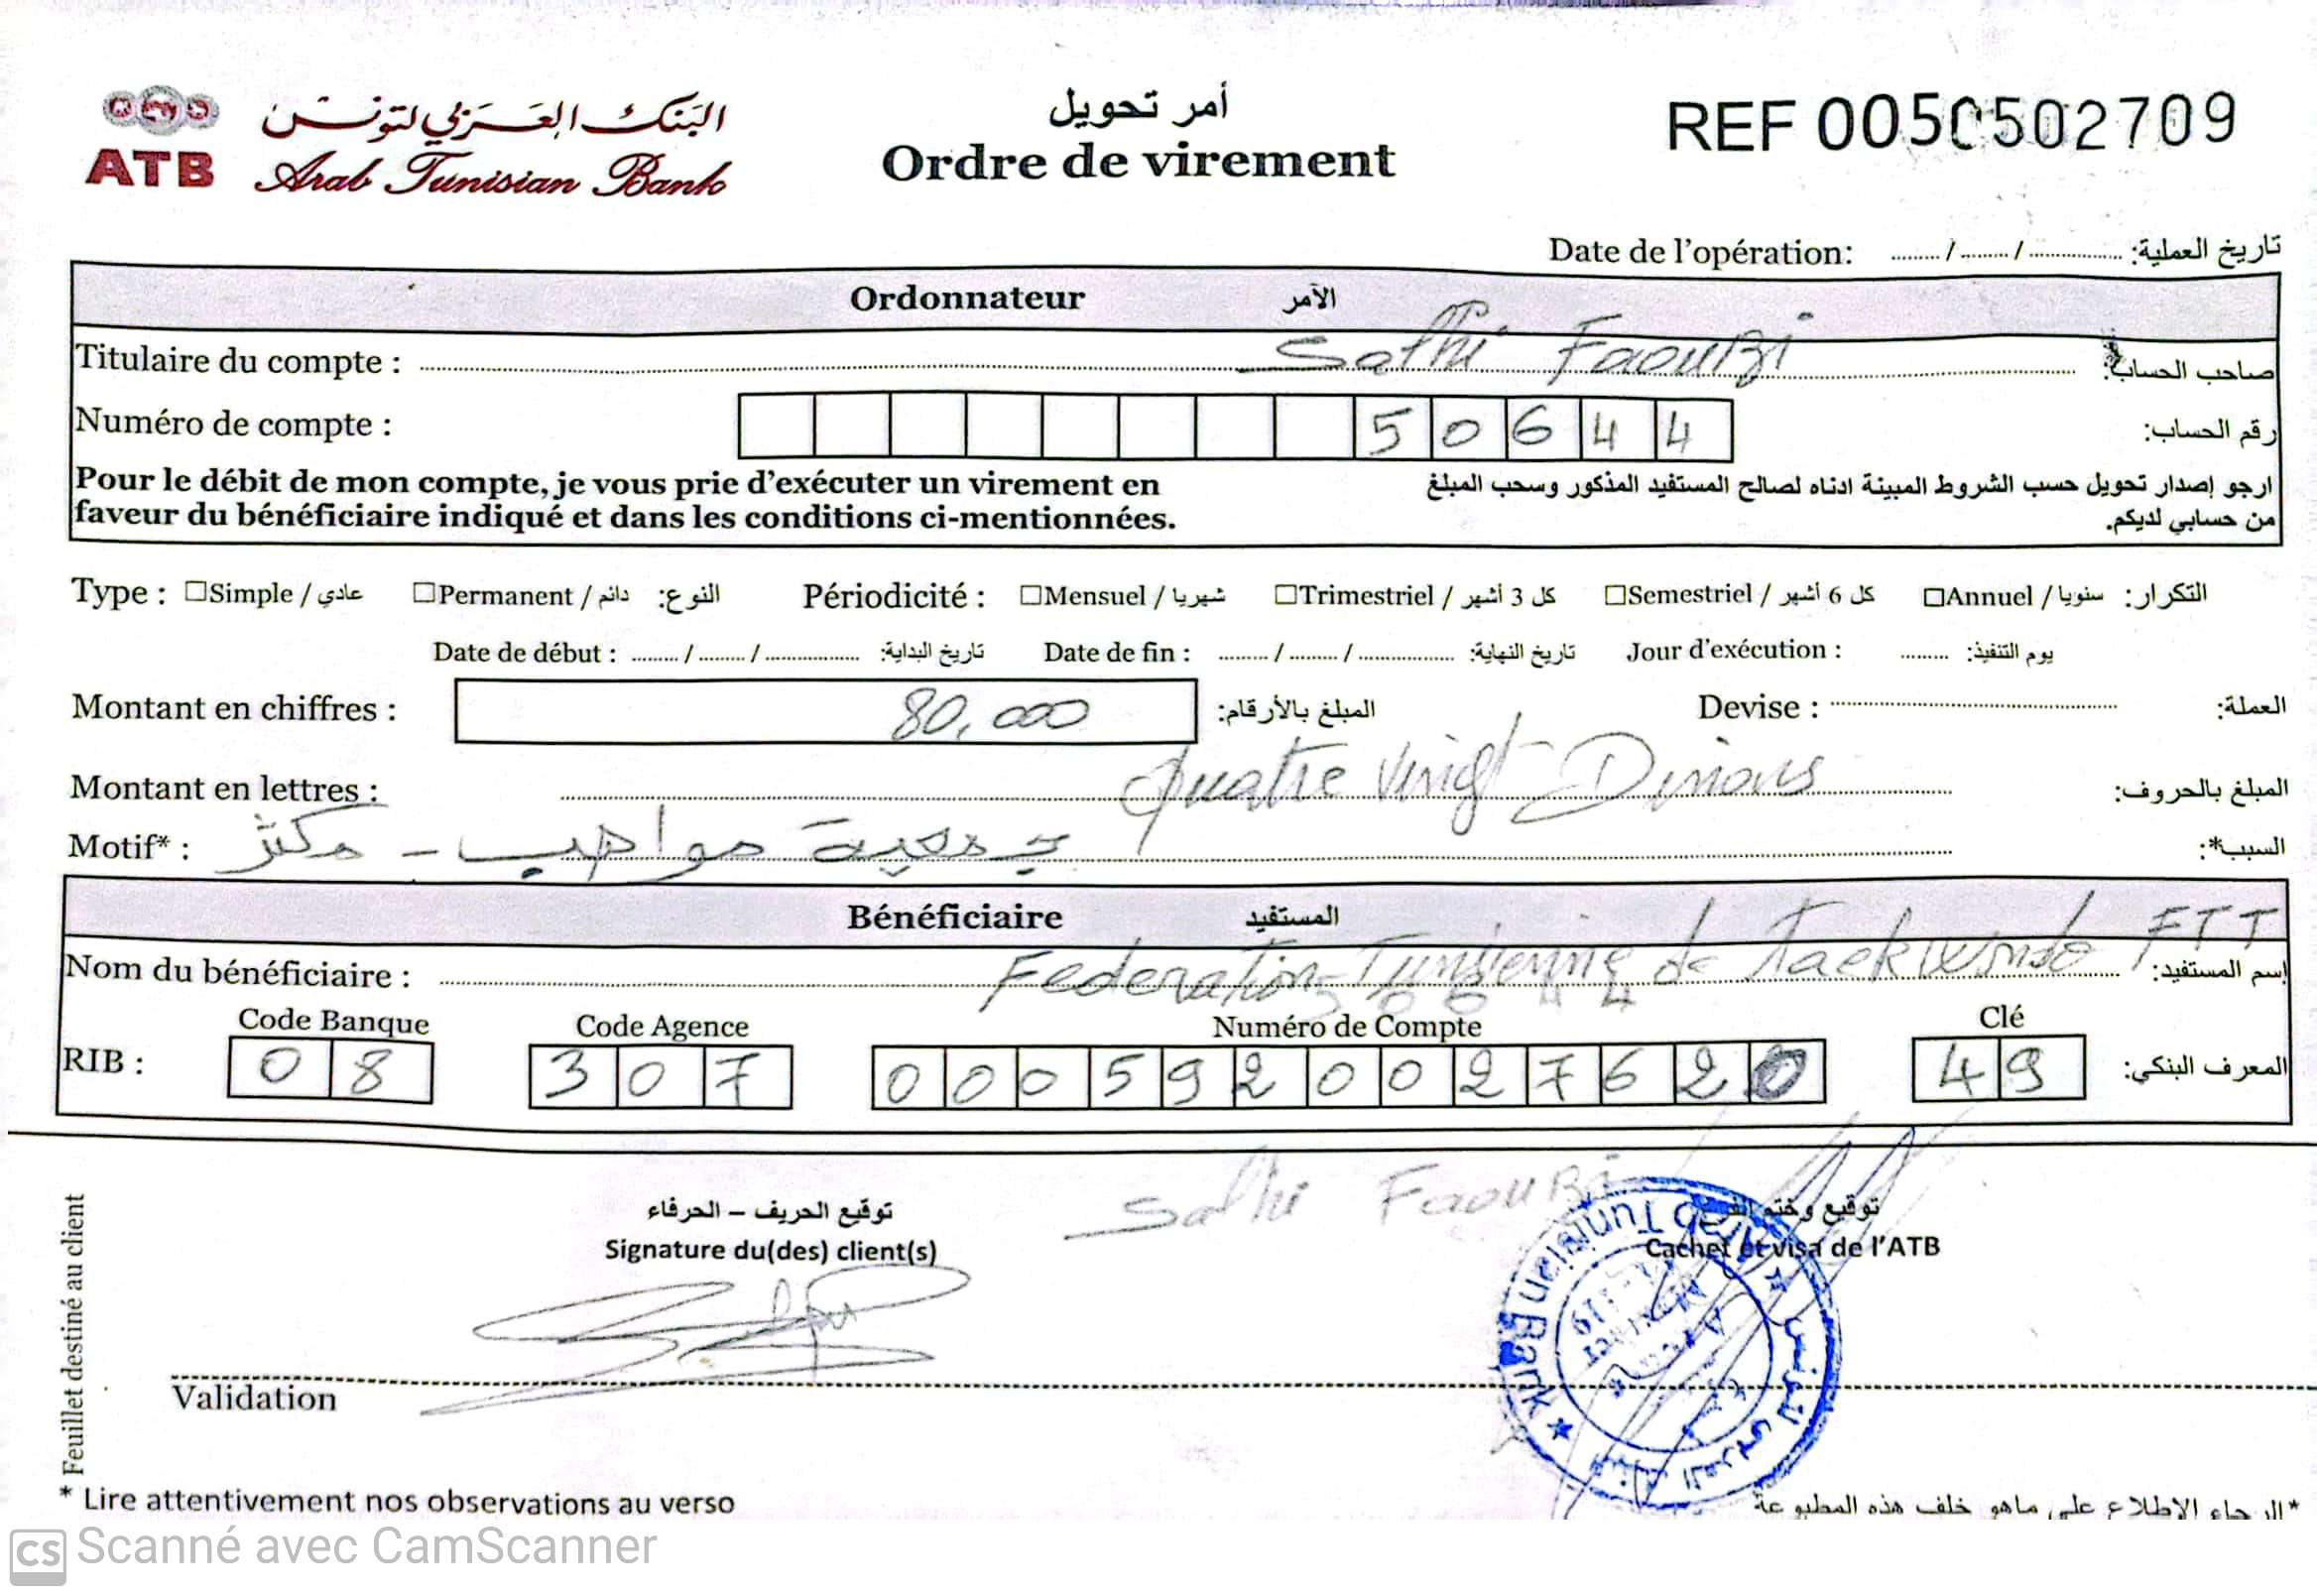 ATB البنك العربي لتونس
Arab Tunisian Bank
أمر تحويل
Ordre de virement
REF 0050502709
Date de l'opération: ......../......../............... تاريخ العملية:
Ordonnateur الآمر
Titulaire du compte : Sathi Faouzi صاحب الحساب:
Numéro de compte : 50644 رقم الحساب:
Pour le débit de mon compte, je vous prie d'exécuter un virement en
faveur du bénéficiaire indiqué et dans les conditions ci-mentionnées.
ارجو إصدار تحويل حسب الشروط المبينة ادناه لصالح المستفيد المذكور وسحب المبلغ
من حسابي لديكم.
Type : □Simple / عادي □Permanent / دائم النوع: Périodicité : □Mensuel / شهريا □Trimestriel / كل 3 أشهر □Semestriel / كل 6 أشهر □Annuel / سنويا التكرار:
Date de début : ......../......../............... تاريخ البداية: Date de fin : ......../......../............... تاريخ النهاية: Jour d'exécution : ......... يوم التنفيذ:
Montant en chiffres : 80,000 المبلغ بالأرقام: Devise : العملة:
Montant en lettres : quatre vingt Dinars المبلغ بالحروف:
Motif* : جمعية مواهب - مكثر السبب*:
Bénéficiaire المستفيد
Nom du bénéficiaire : Federation Tunisienne de Taekwondo / FTT إسم المستفيد:
50644
Code Banque Code Agence Numéro de Compte Clé
RIB : 08 307 0005920027620 49 المعرف البنكي:
Sathi Faouzi
توقيع الحريف – الحرفاء
Signature du(des) client(s)
توقيع وختم الفرع
Cachet et visa de l'ATB
Arab Tunisian Bank
البنك العربي لتونس
Validation
Feuillet destiné au client
* Lire attentivement nos observations au verso
*الرجاء الإطلاع على ماهو خلف هذه المطبوعة
CS Scanné avec CamScanner